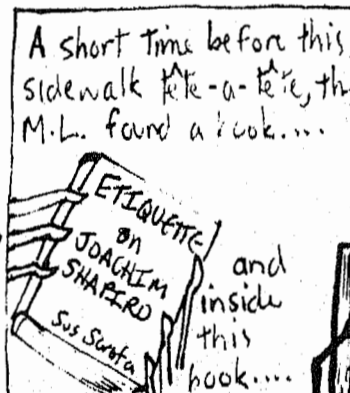 A short time before this
sidewalk tête-a-tête, th
M.L. found a book....
ETIQUETTE
on
JOACHIM
SHAPIRO
Sus Scrofa
and
inside
this
book....